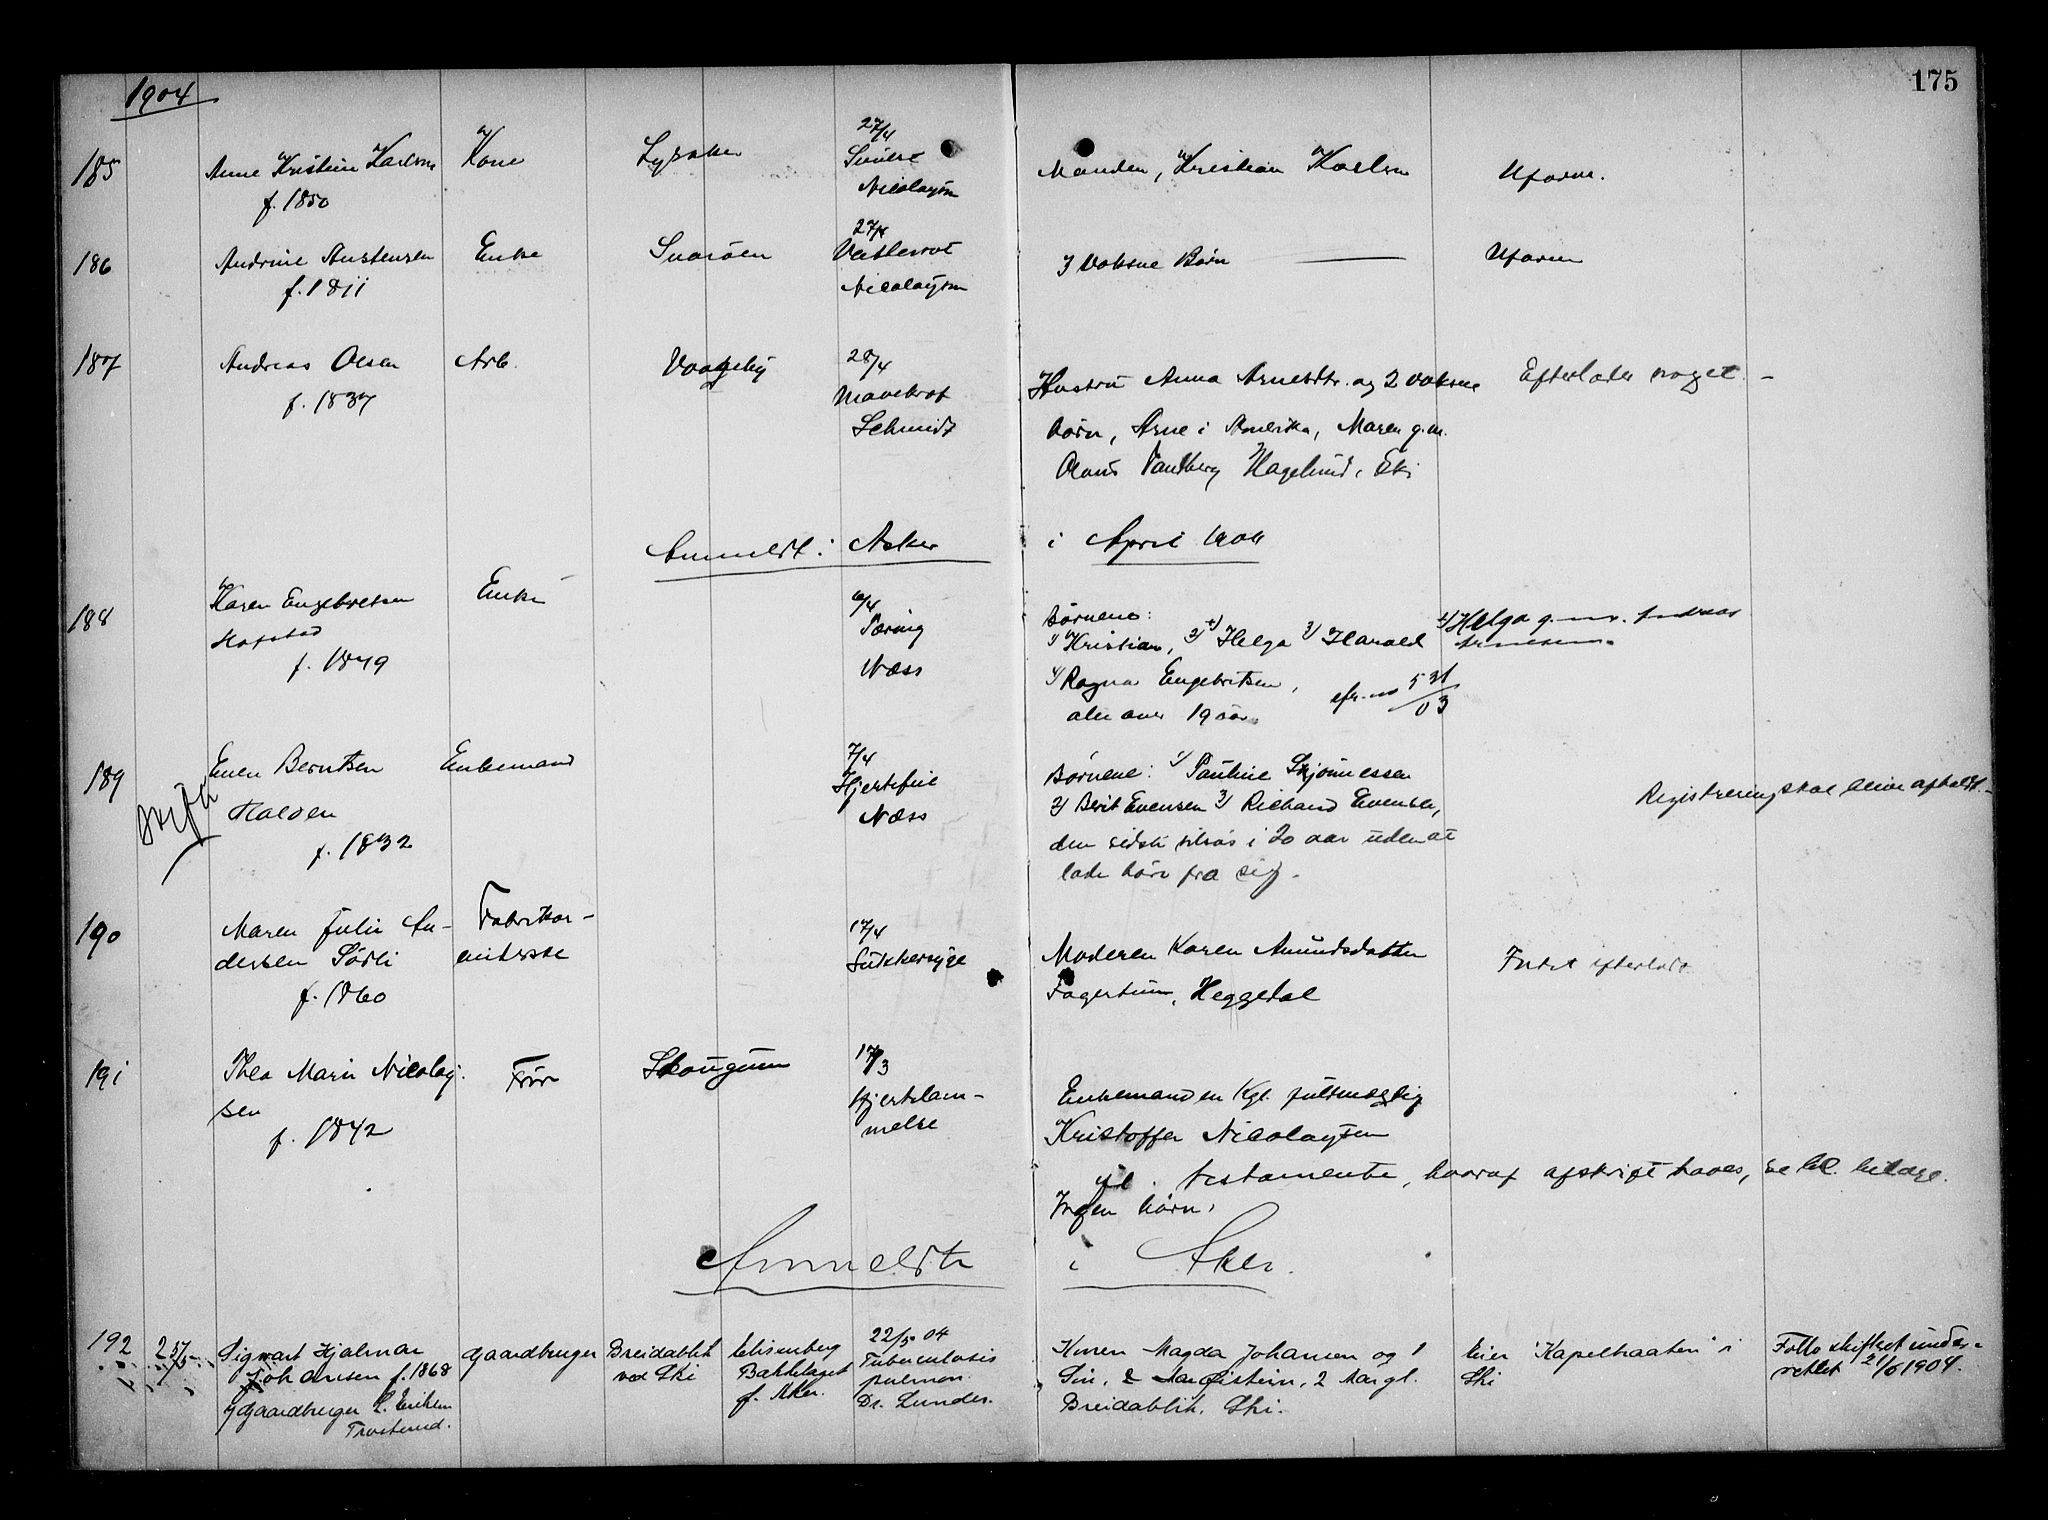 1904
175
185
Anne Kristine Karlsen
f. 1850
Kone
Lysaker
27/4
Nicolaysen
Manden, Kristian Karlsen
Uform.
186
Andrine Austensen
f. 1811
Enke
Snarøen
27/4
Nicolaysen
3 voksne Børn
Uform
187
Andreas Olsen
f. 1837
Arb.
28/4
Mavekræft
Schmidt
Hustru Anna Arnesdtr. og 2 voksne
børn, Arne i Amerika, Maren g.m.
Olaus Sandberg Hagelund, Ski
Efterlader noget. –
Anmeldt i Asker
i April 1904
188
Karen Engebretsen
Hofstad
f. 1849
Enke
6/4
Tæring
Næss
Børnene:
1) Kristian, 2) +) Helga 3) Harald
4) Ragna Engebretsen,
alle over 19 aar.
efr. no 531/03
+) Helga g. m. Andreas
Arnesen.
189
skifte
Even Berntsen
Halden
f. 1832
Enkemand
7/4
Hjertefeil
Næss
Børnene: 1) Pauline
2) Berit Evensen 3) Richard Evensen,
den sidste tilsøs i 20 aar uden at
lade høre fra sig.
Registrering skal blive afholdt –
190
Maren Julie An-
dersen Sørli
f. 1860
Fabrikar-
beiderske
17/4
Sukkersyge
Moderen Karen Amundsdatter
Fagertun, Heggedal
Intet efterladt
191
Thea Marie Nicolay-
sen
f. 1842
Frue
Skougum
17/3
Hjertelam-
melse
Enkemanden Kgl. fuldmægtig
Kristoffer Nicolaysen
testamente, hvoraf afskrift haves, se bl. bilage.
Ingen børn.
Anmeldte
i Aker.
192
257
Sigwart Hjalmar
Johansen f. 1868
Gaardbruger L. Eriksen
Trosterud.
Gaardbruger
Breidablik
ved Ski
Elisenberg
Bækkelaget
f. Aker.
22/5 04
Tuberculosis
pulmon.
Dr. Lunder.
Konen Magda Johansen og 1
Søn, Øistein, 2 Aar gl.
Breidablik, Ski.
Eier "Kapelhaaten" i
Ski
Follo skifteret under-
rettet 21/6 1904.